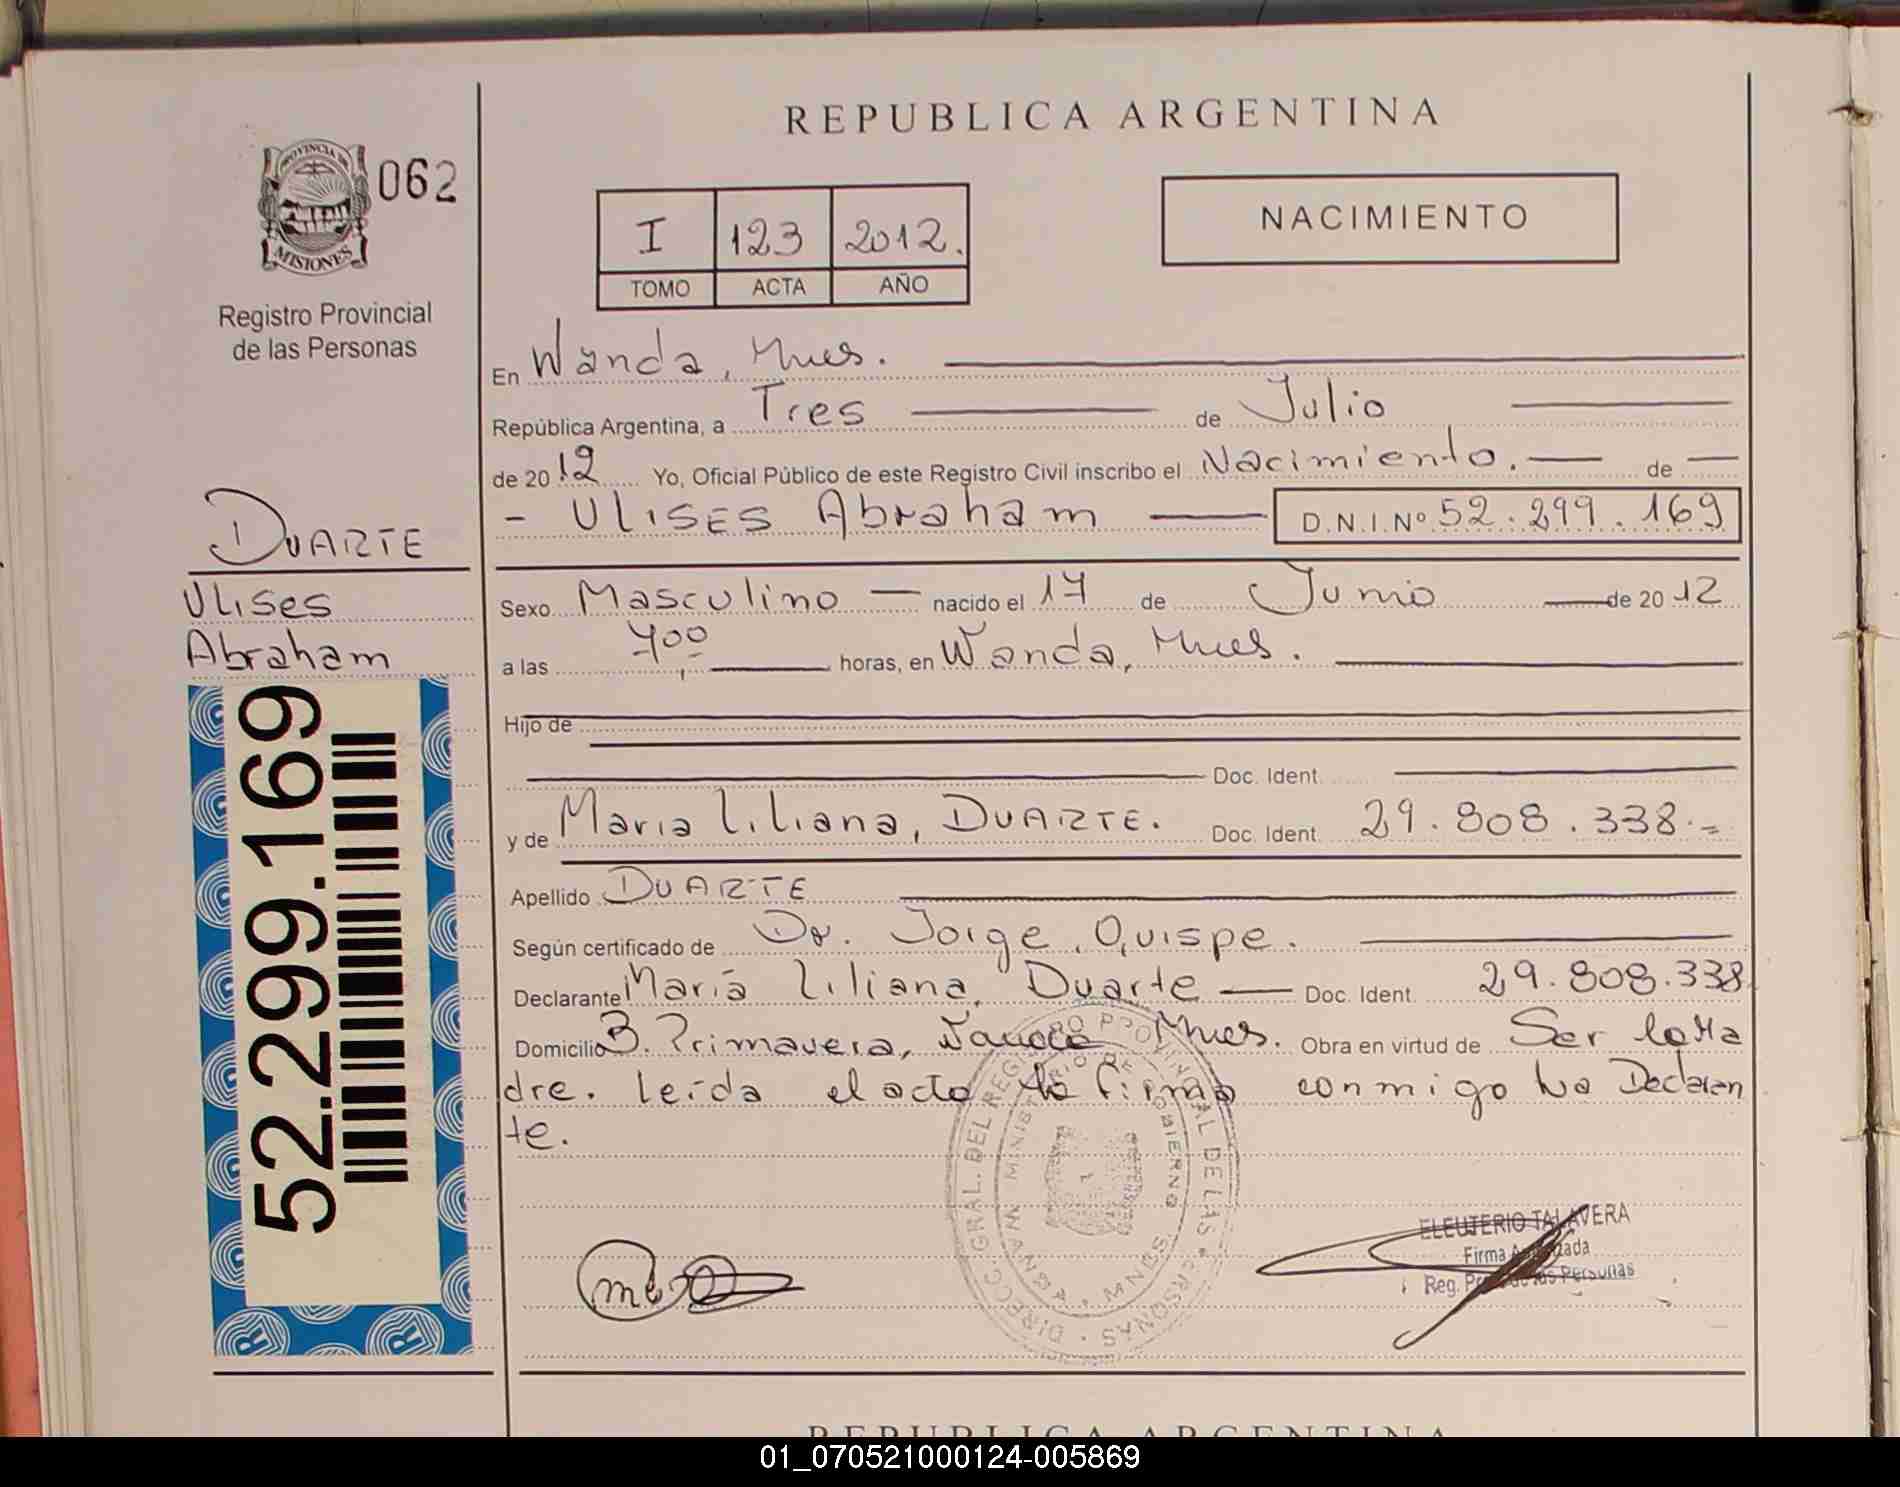 REPUBLICA ARGENTINA
PROVINCIA DE
MISIONES
062
Registro Provincial
de las Personas
I 123 2012.
TOMO ACTA AÑO
NACIMIENTO
En Wanda, Mnes.
República Argentina, a Tres de Julio
de 20 12 Yo, Oficial Público de este Registro Civil inscribo el Nacimiento. de
- ULISES Abraham D.N.I.Nº 52.299.169
DUARTE
Ulises
Abraham
52.299.169
Sexo Masculino nacido el 17 de Junio de 20 12
a las 7,00 horas, en Wanda, Mnes.
Hijo de
Doc. Ident.
y de Maria Liliana, DUARTE. Doc. Ident. 29.808.338.=
Apellido DUARTE
Según certificado de Dr. Jorge Quispe.
Declarante María Liliana, Duarte Doc. Ident. 29.808.338
Domicilio B. Primavera, Wanda Mnes. Obra en virtud de Ser la Ma
dre. leída el acta la firma conmigo la Declaran
te.
DIRECC. GRAL. DEL REGISTRO PROVINCIAL DE LAS PERSONAS
MINISTERIO DE GOBIERNO
WANDA - MNES.
ELEUTERIO TALAVERA
Firma Autorizada
Reg. Prov. de las Personas
REPUBLICA ARGENTINA
01_070521000124-005869